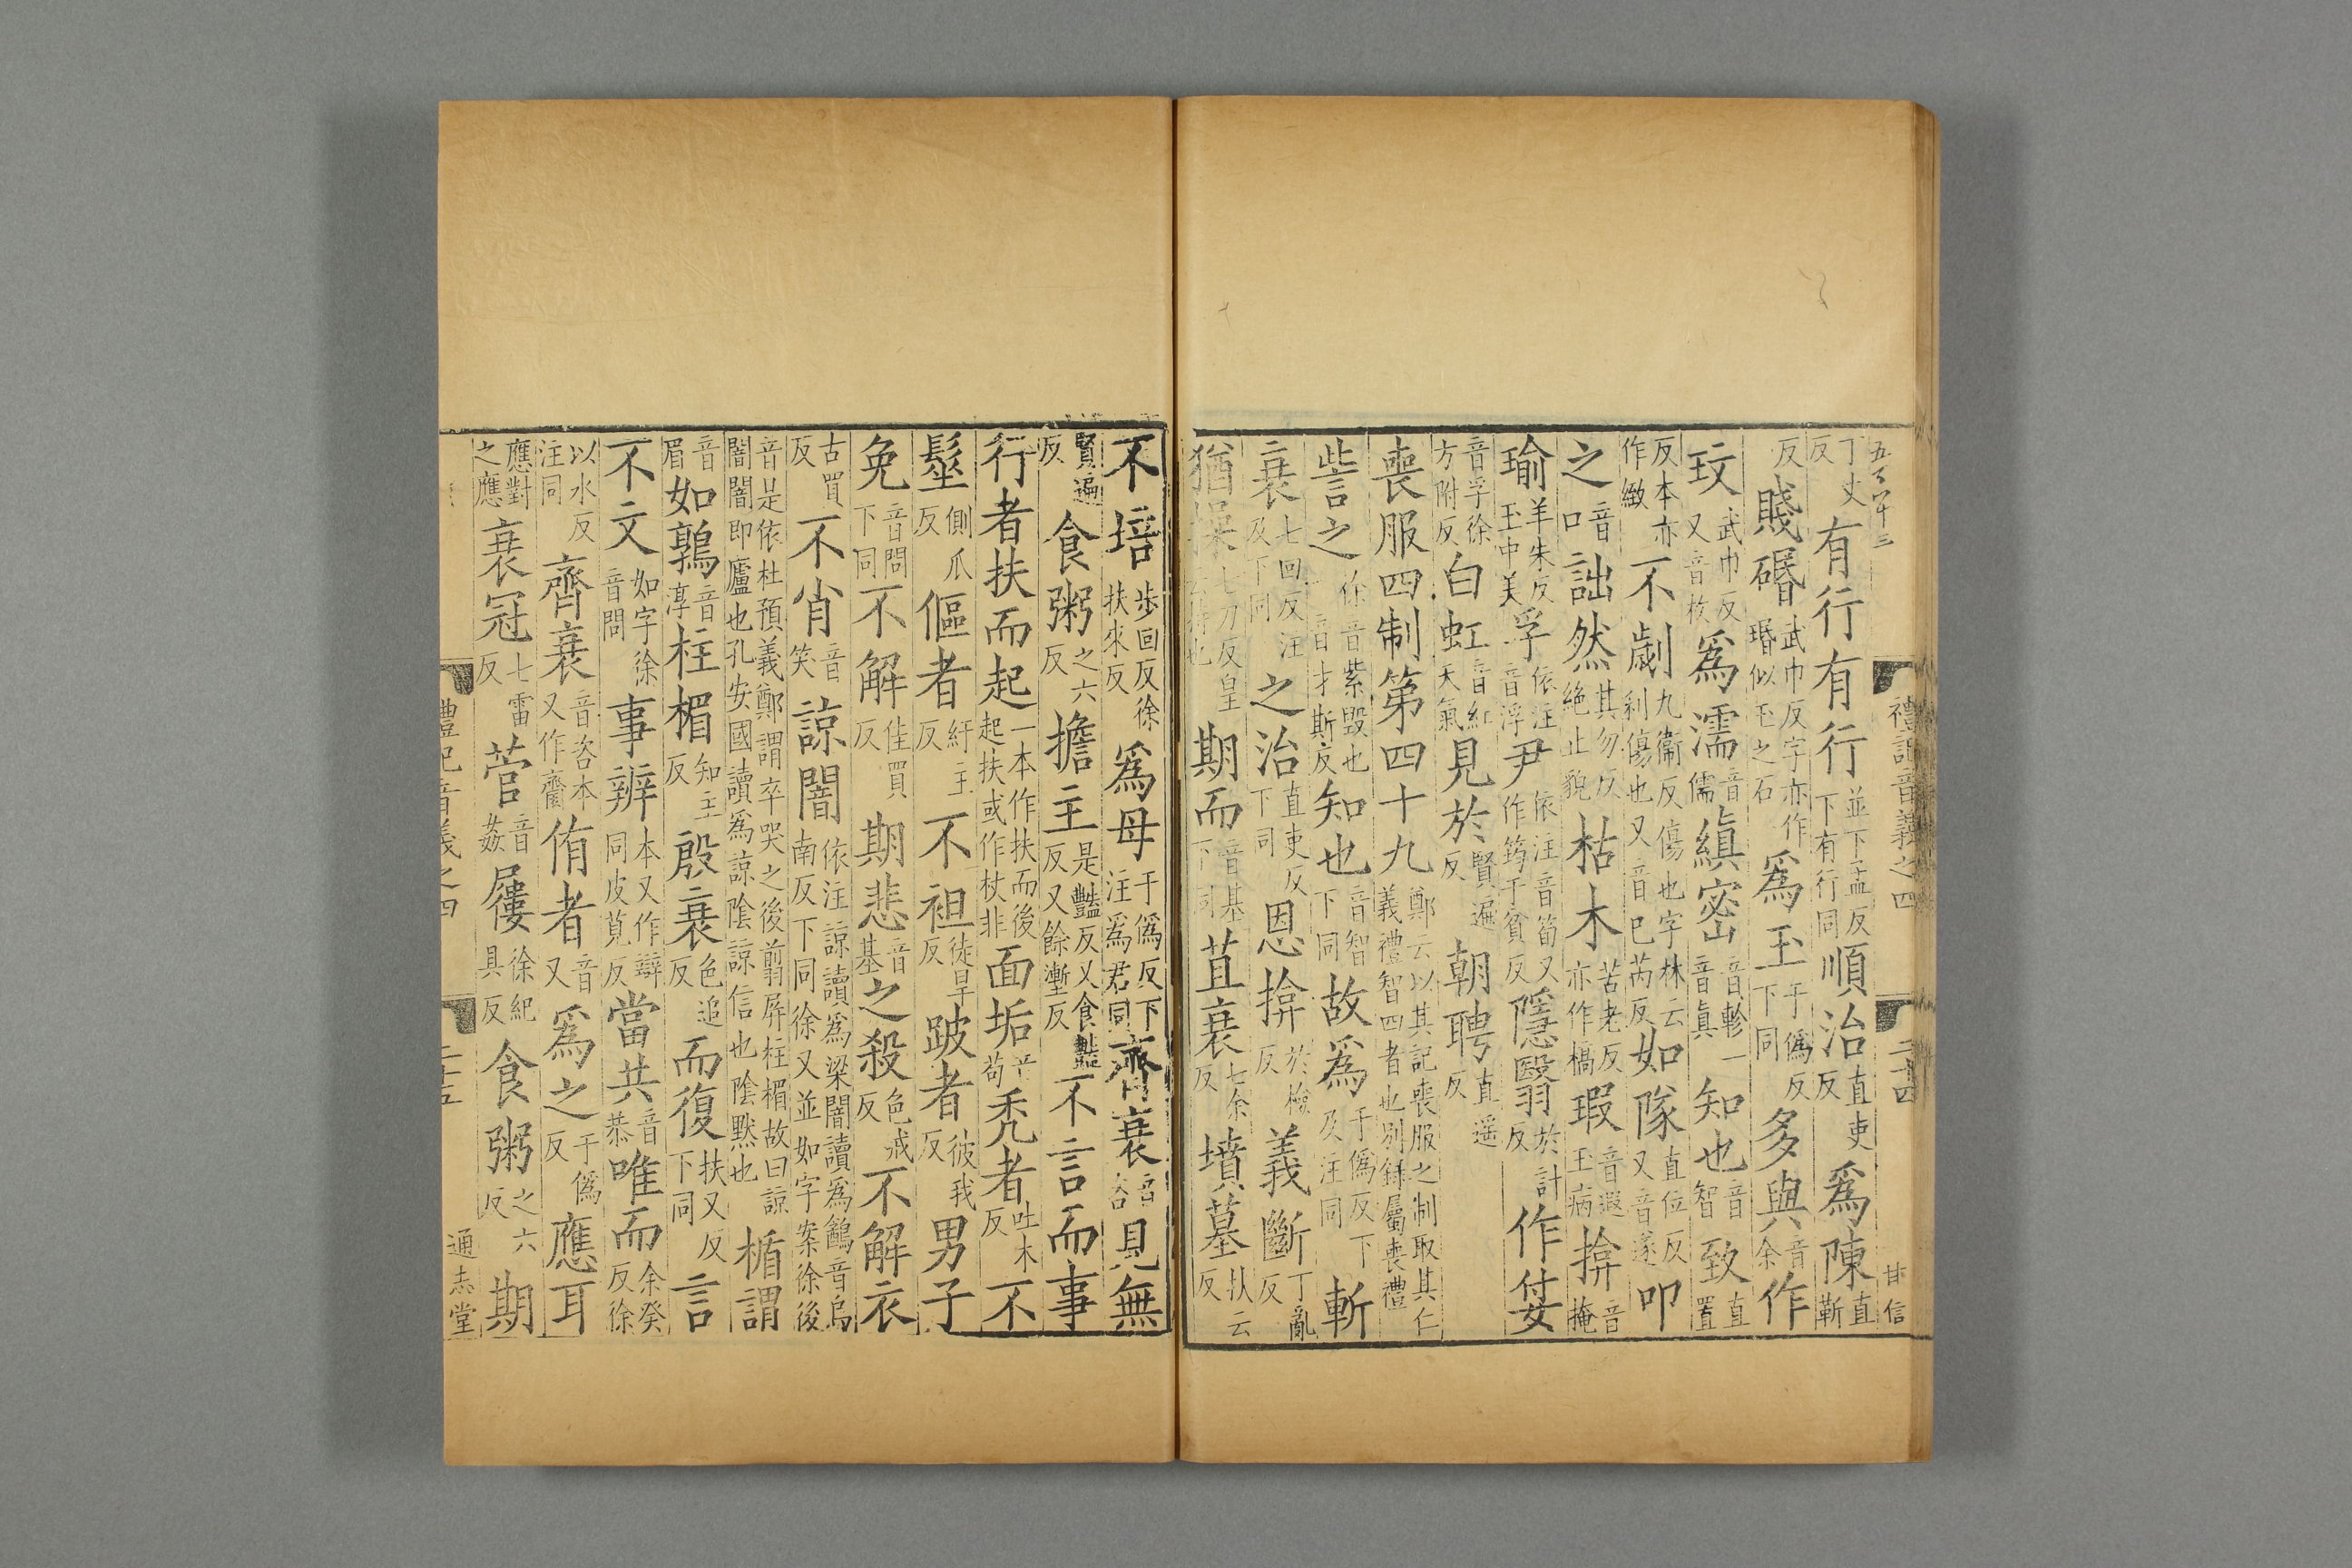 禮記音義之四 二十四 甘信
丁丈反有行有行並下孟反下有行同順治直吏反爲陳直靳
反賤碈武巾反字亦作瑉似玉之石爲玉于僞反下同多與音余作
玟武巾反又音枚爲濡音儒縝密音軫一音眞知也音智致直置
反本亦作緻不劌九衞反傷也字林云利傷也又音已芮反如隊直位反又音遂叩
之音口詘然其勿反絶止貌枯木苦老反亦作槁瑕音遐玉病揜音掩
瑜羊朱反玉中美孚依注音浮尹依注音筍又作筠于貧反隱翳於計反作㚢
音孚徐方附反白虹音紅天氣見於賢遍反朝聘直遥反
喪服四制第四十九鄭云以其記喪服之制取其仁義禮智四者也别録屬喪禮
訾之徐音紫毁也一音才斯反知也音智下同故爲于僞反下及注同斬
衰七回反注及下同之治直吏反下同恩揜於檢反義斷丁亂反
猶操七刀反皇云持也期而音基下同苴衰七余反墳墓扶云反
不培步回反徐扶來反爲母于僞反下注爲君同齊衰音咨見無
賢遍反食粥之六反擔主是豔反又食豔反又餘塹反不言而事
行者扶而起一本作扶而後起扶或作杖非面垢音苟秃者吐木反不
髽側爪反傴者紆主反不袒徒旱反跛者彼我反男子
免音問下同不解佳買反期悲音基之殺色戒反不解衣
古買反不肖音笑諒闇依注諒讀爲梁闇讀爲鵪音烏南反下同徐又並如字案徐後
音是依杜預義鄭謂卒哭之後翦屏柱楣故曰諒闇闇即廬也孔安國讀爲諒陰諒信也陰默也楯謂
音眉如鶉音淳柱楣知主反殷衰色追反而復扶又反下同言
不文如字徐音問事辨本又作辯同皮莧反當共音恭唯而余癸反徐
以水反注同齊衰音咨本又作齎侑者音又爲之于僞反應耳
應對之應衰冠七雷反菅音姦屨徐紀具反食粥之六反期
禮記音義之四 二十五 通志堂